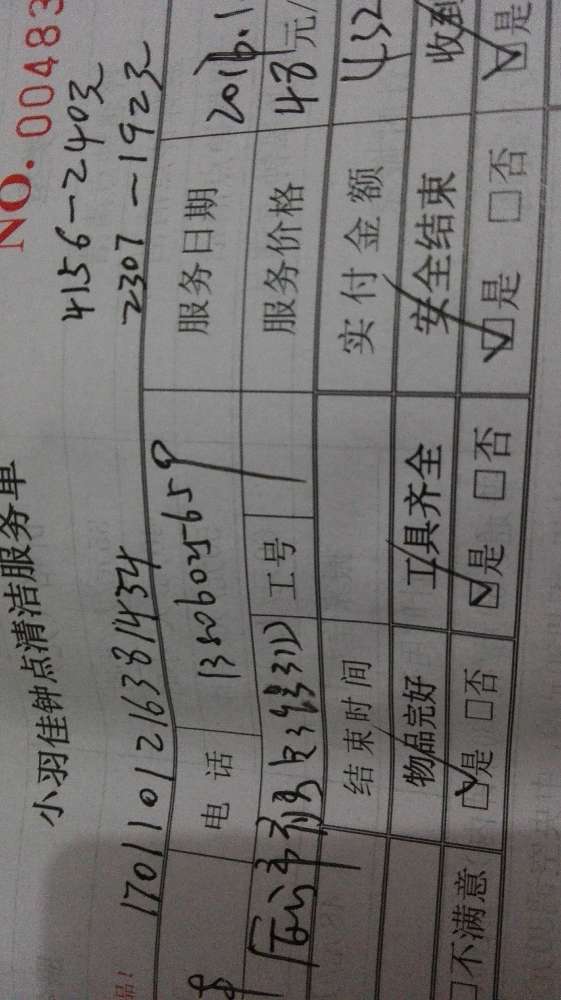 小羽佳钟点清洁服务单
NO. 00483
4156-240元
1701101216381434 2307-192元
电话 服务日期 2016.1
工号 服务价格 48元/
结束时间 实付金额 432
物品完好 工具齐全 安全结束 收到
□不满意 ☑是 □否 ☑是 □否 ☑是 □否 ☑是